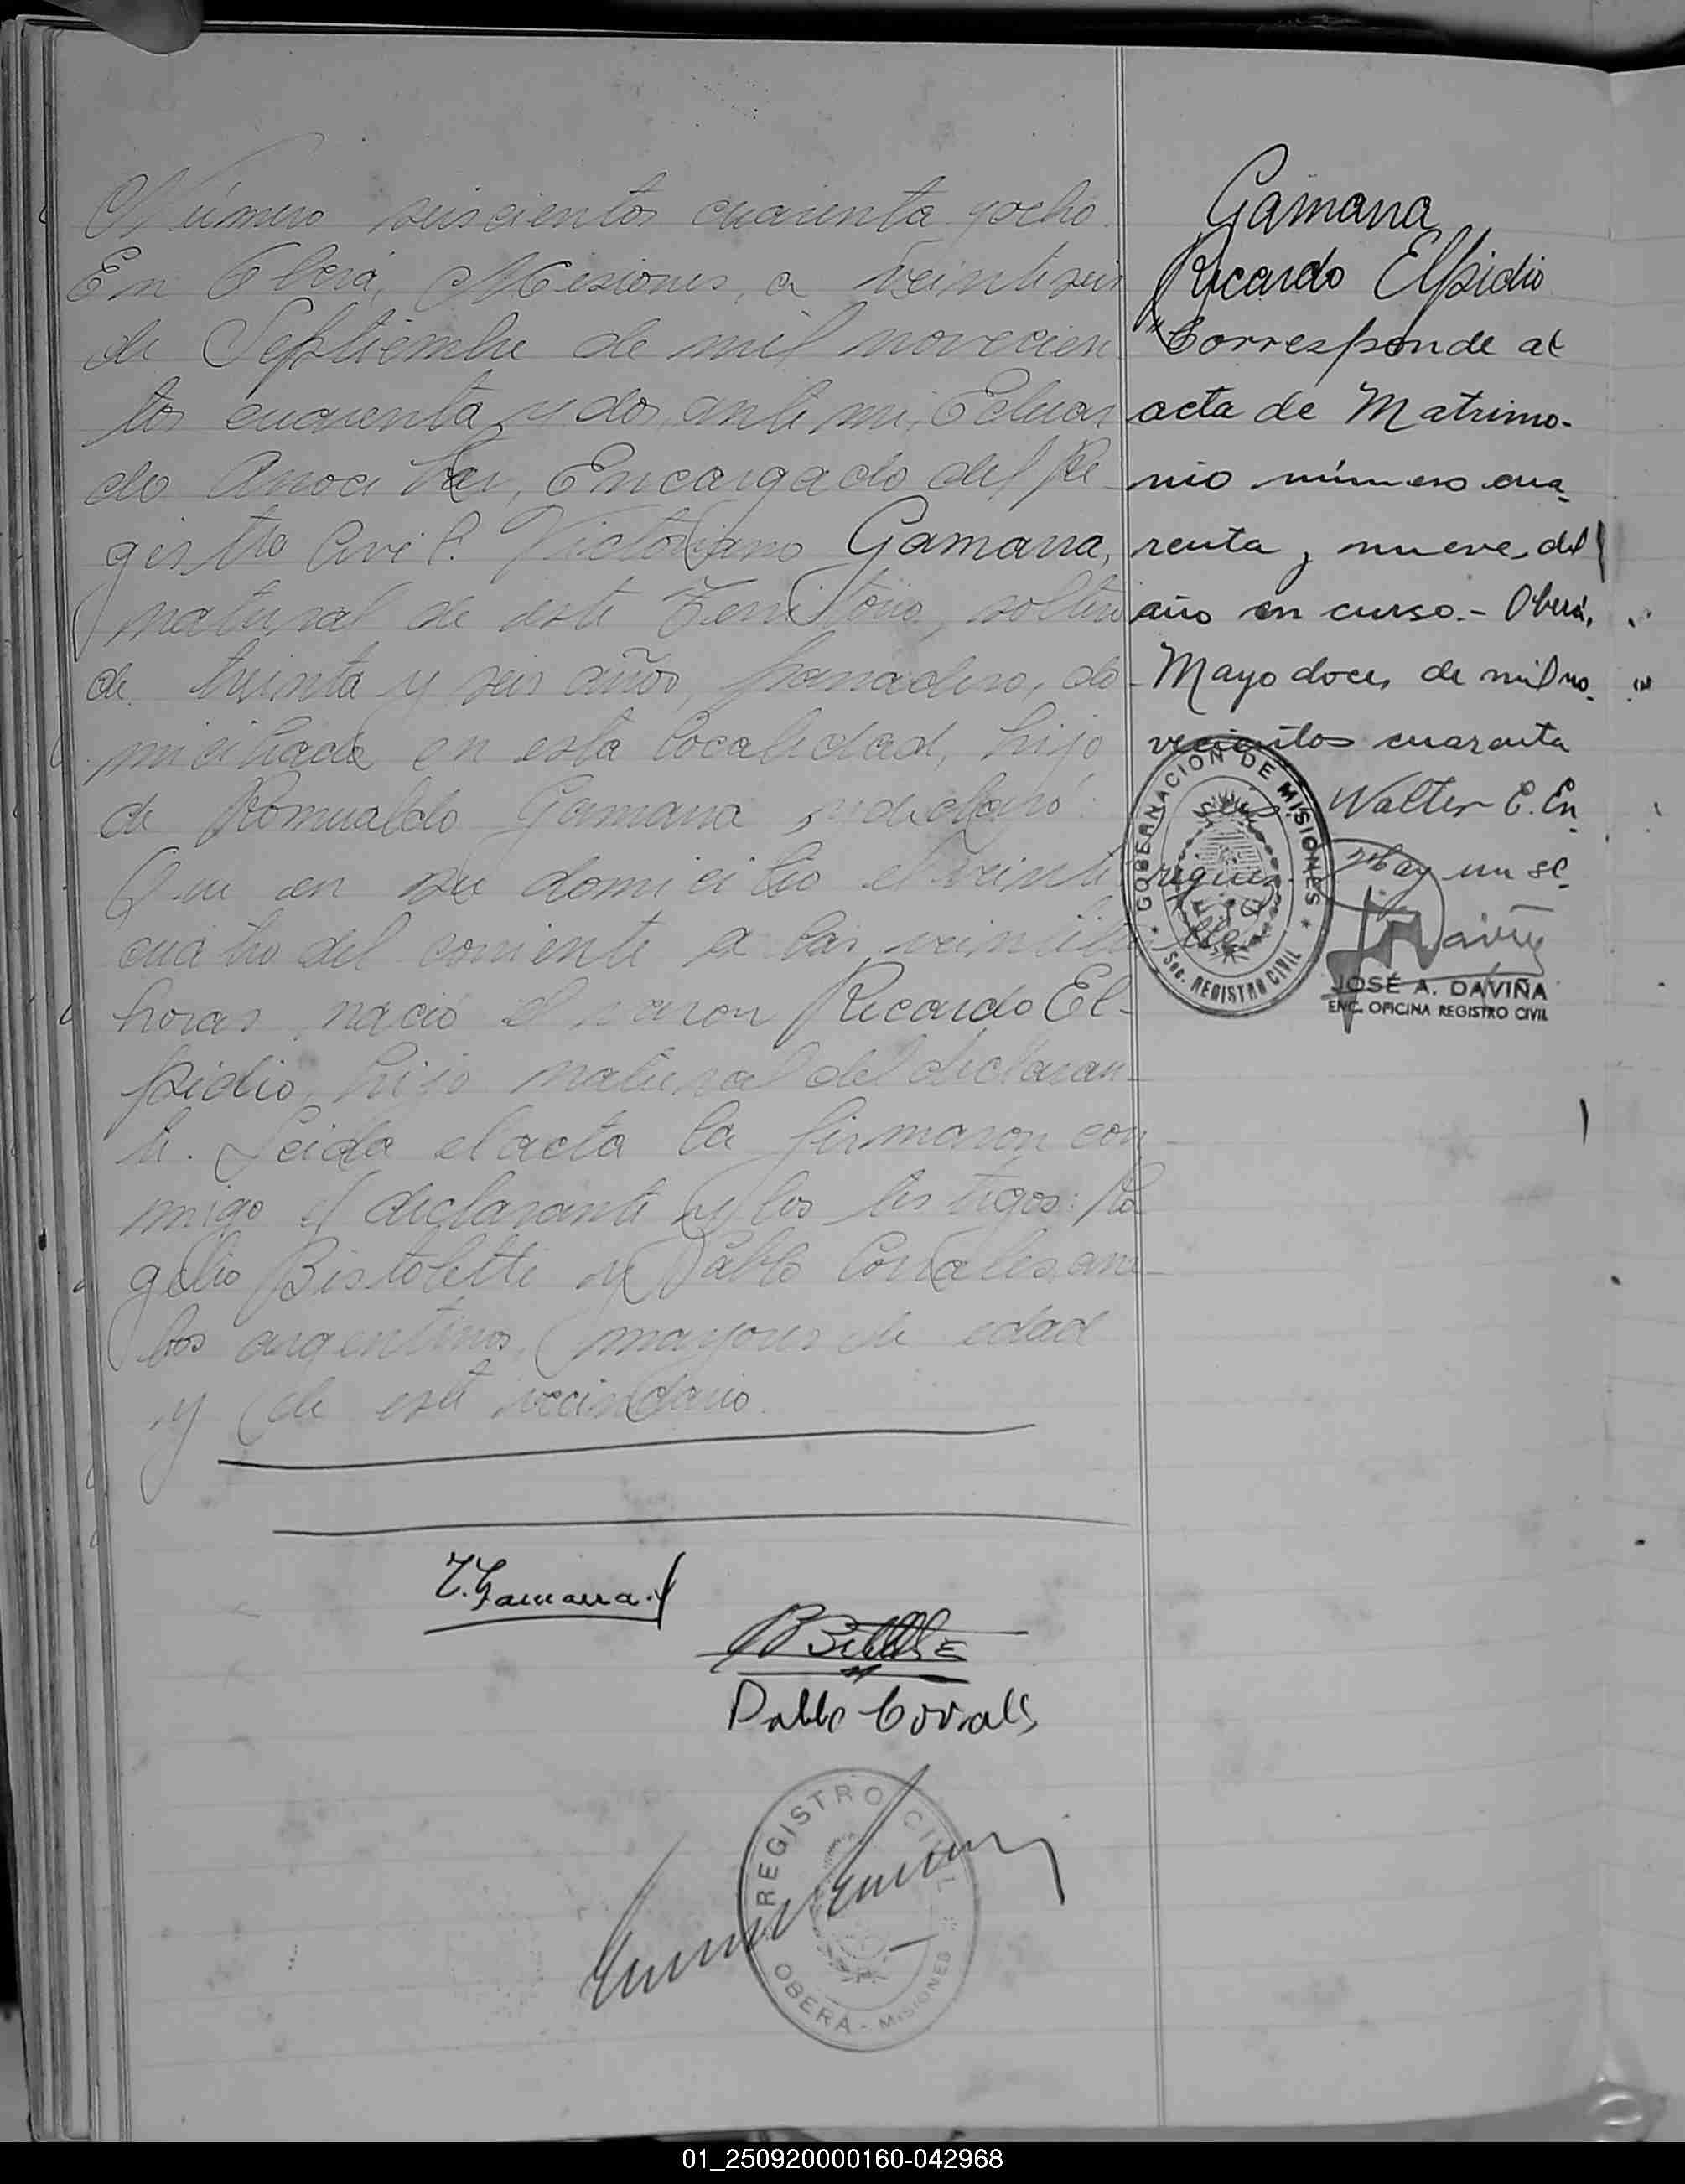 Número seiscientos cuarenta y ocho.
En Oberá, Misiones, a veintiseis
de Septiembre de mil novecien
tos cuarenta y dos, ante mi, Eduar
do Anoci bar, Encargado del Re
gistro Civil. Victoriano Gamarra,
natural de este Territorio, soltero
de treinta y seis años, panadero, do
miciliado en esta localidad, hijo
de Romualdo Gamarra, y declaró:
Que en su domicilio el veinti
cuatro del corriente a las
horas, nació el varon Ricardo El-
pidio, hijo natural del declaran-
te. Leida el acta la firmaron con
migo el declarante y los testigos: Ro
gelio Bistoletti y Pablo Corrales, am-
bos argentinos, mayores de edad
y de este vecindario.
Gamarra
Ricardo Elpidio
"Corresponde al
acta de Matrimo-
nio número cua-
renta y nueve del
año en curso.- Oberá,
Mayo doce, de mil no-
vecientos cuarenta
seis. Walter E. En
riquez. Hay un se-
llo
GOBERNACIÓN DE MISIONES
Sec. REGISTRO CIVIL
JOSÉ A. DAVIÑA
ENC. OFICINA REGISTRO CIVIL
V. Gamarra
Pablo Corrales
REGISTRO CIVIL
OBERÁ - MISIONES
01_250920000160-042968